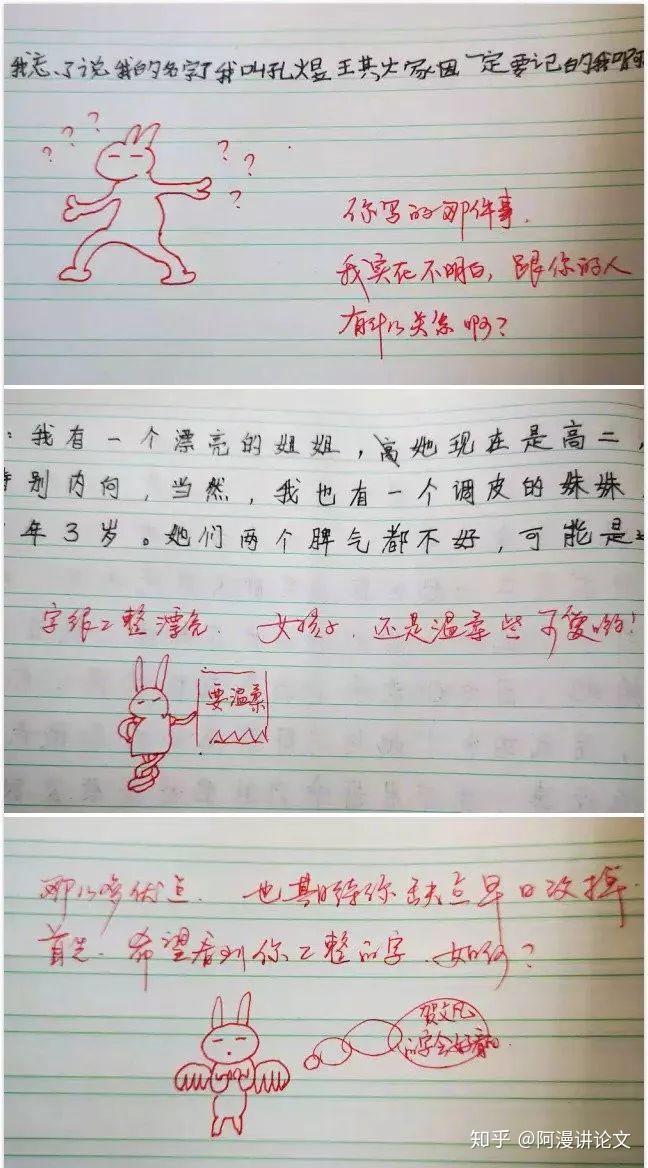 我忘了说我的名字了我叫孔煜王其大家因一定要记的我啊
? ? ? ? ? ?
你写的那件事,
我实在不明白,跟你的人
有什么关系啊?
:我有一个漂亮的姐姐,她现在是高二,
特别内向,当然,我也有一个调皮的妹妹,
年3岁。她们两个脾气都不好,可能是
字很工整漂亮. 女孩子,还是温柔些可爱哟!
要温柔
那么多优点. 也期待你缺点早日改掉.
首先.希望看到你工整的字.如何?
贺文凡
的字会好看的.
知乎 @阿漫讲论文